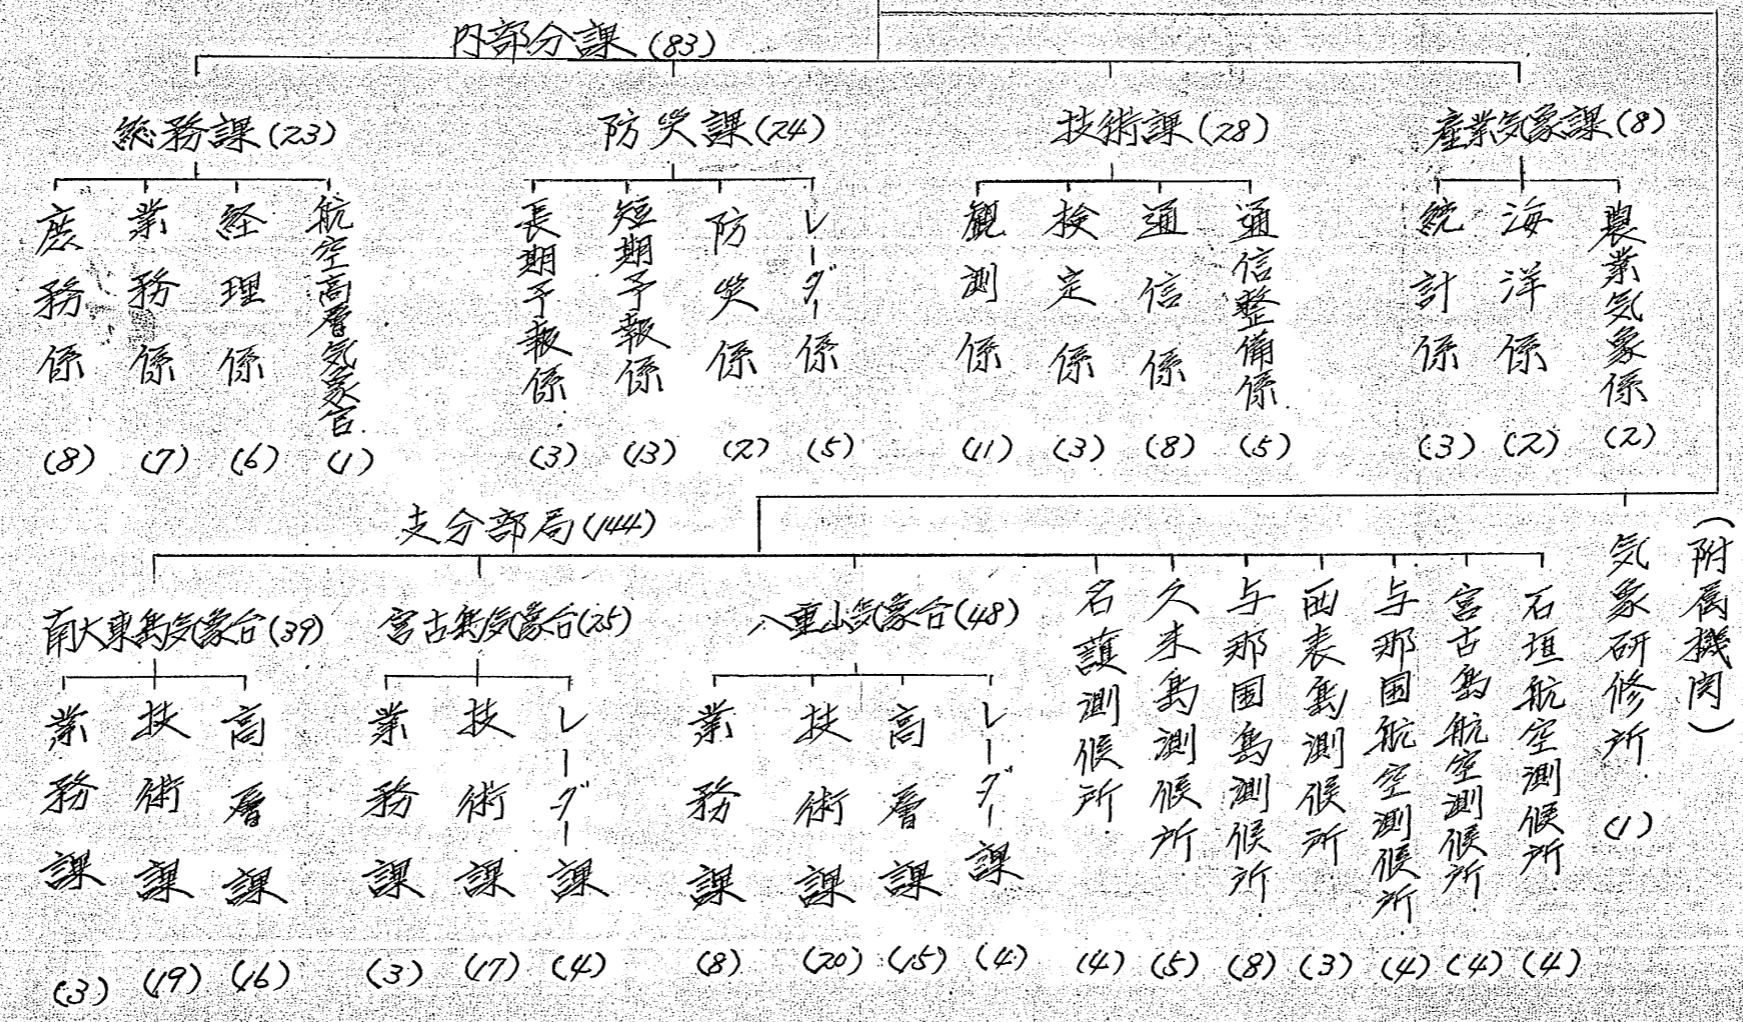 内部分課(83)
総務課(23)
庶務係(8)
業務係(7)
経理係(6)
航空高層気象官(1)
防災課(24)
長期予報係(3)
短期予報係(13)
防災係(2)
レーダー係(5)
技術課(28)
観測係(11)
検定係(3)
通信係(8)
通信整備係(5)
産業気象課(8)
統計係(3)
海洋係(2)
農業気象係(2)
支分部局(144)
南大東島気象台(39)
業務課(3)
技術課(19)
高層課(16)
宮古島気象台(25)
業務課(3)
技術課(17)
レーダー課(4)
八重山気象台(48)
業務課(8)
技術課(20)
高層課(15)
レーダー課(4)
名護測候所(4)
久米島測候所(5)
与那国島測候所(8)
西表島測候所(3)
与那国航空測候所(4)
宮古島航空測候所(4)
石垣航空測候所(4)
(附属機関)
気象研修所(1)